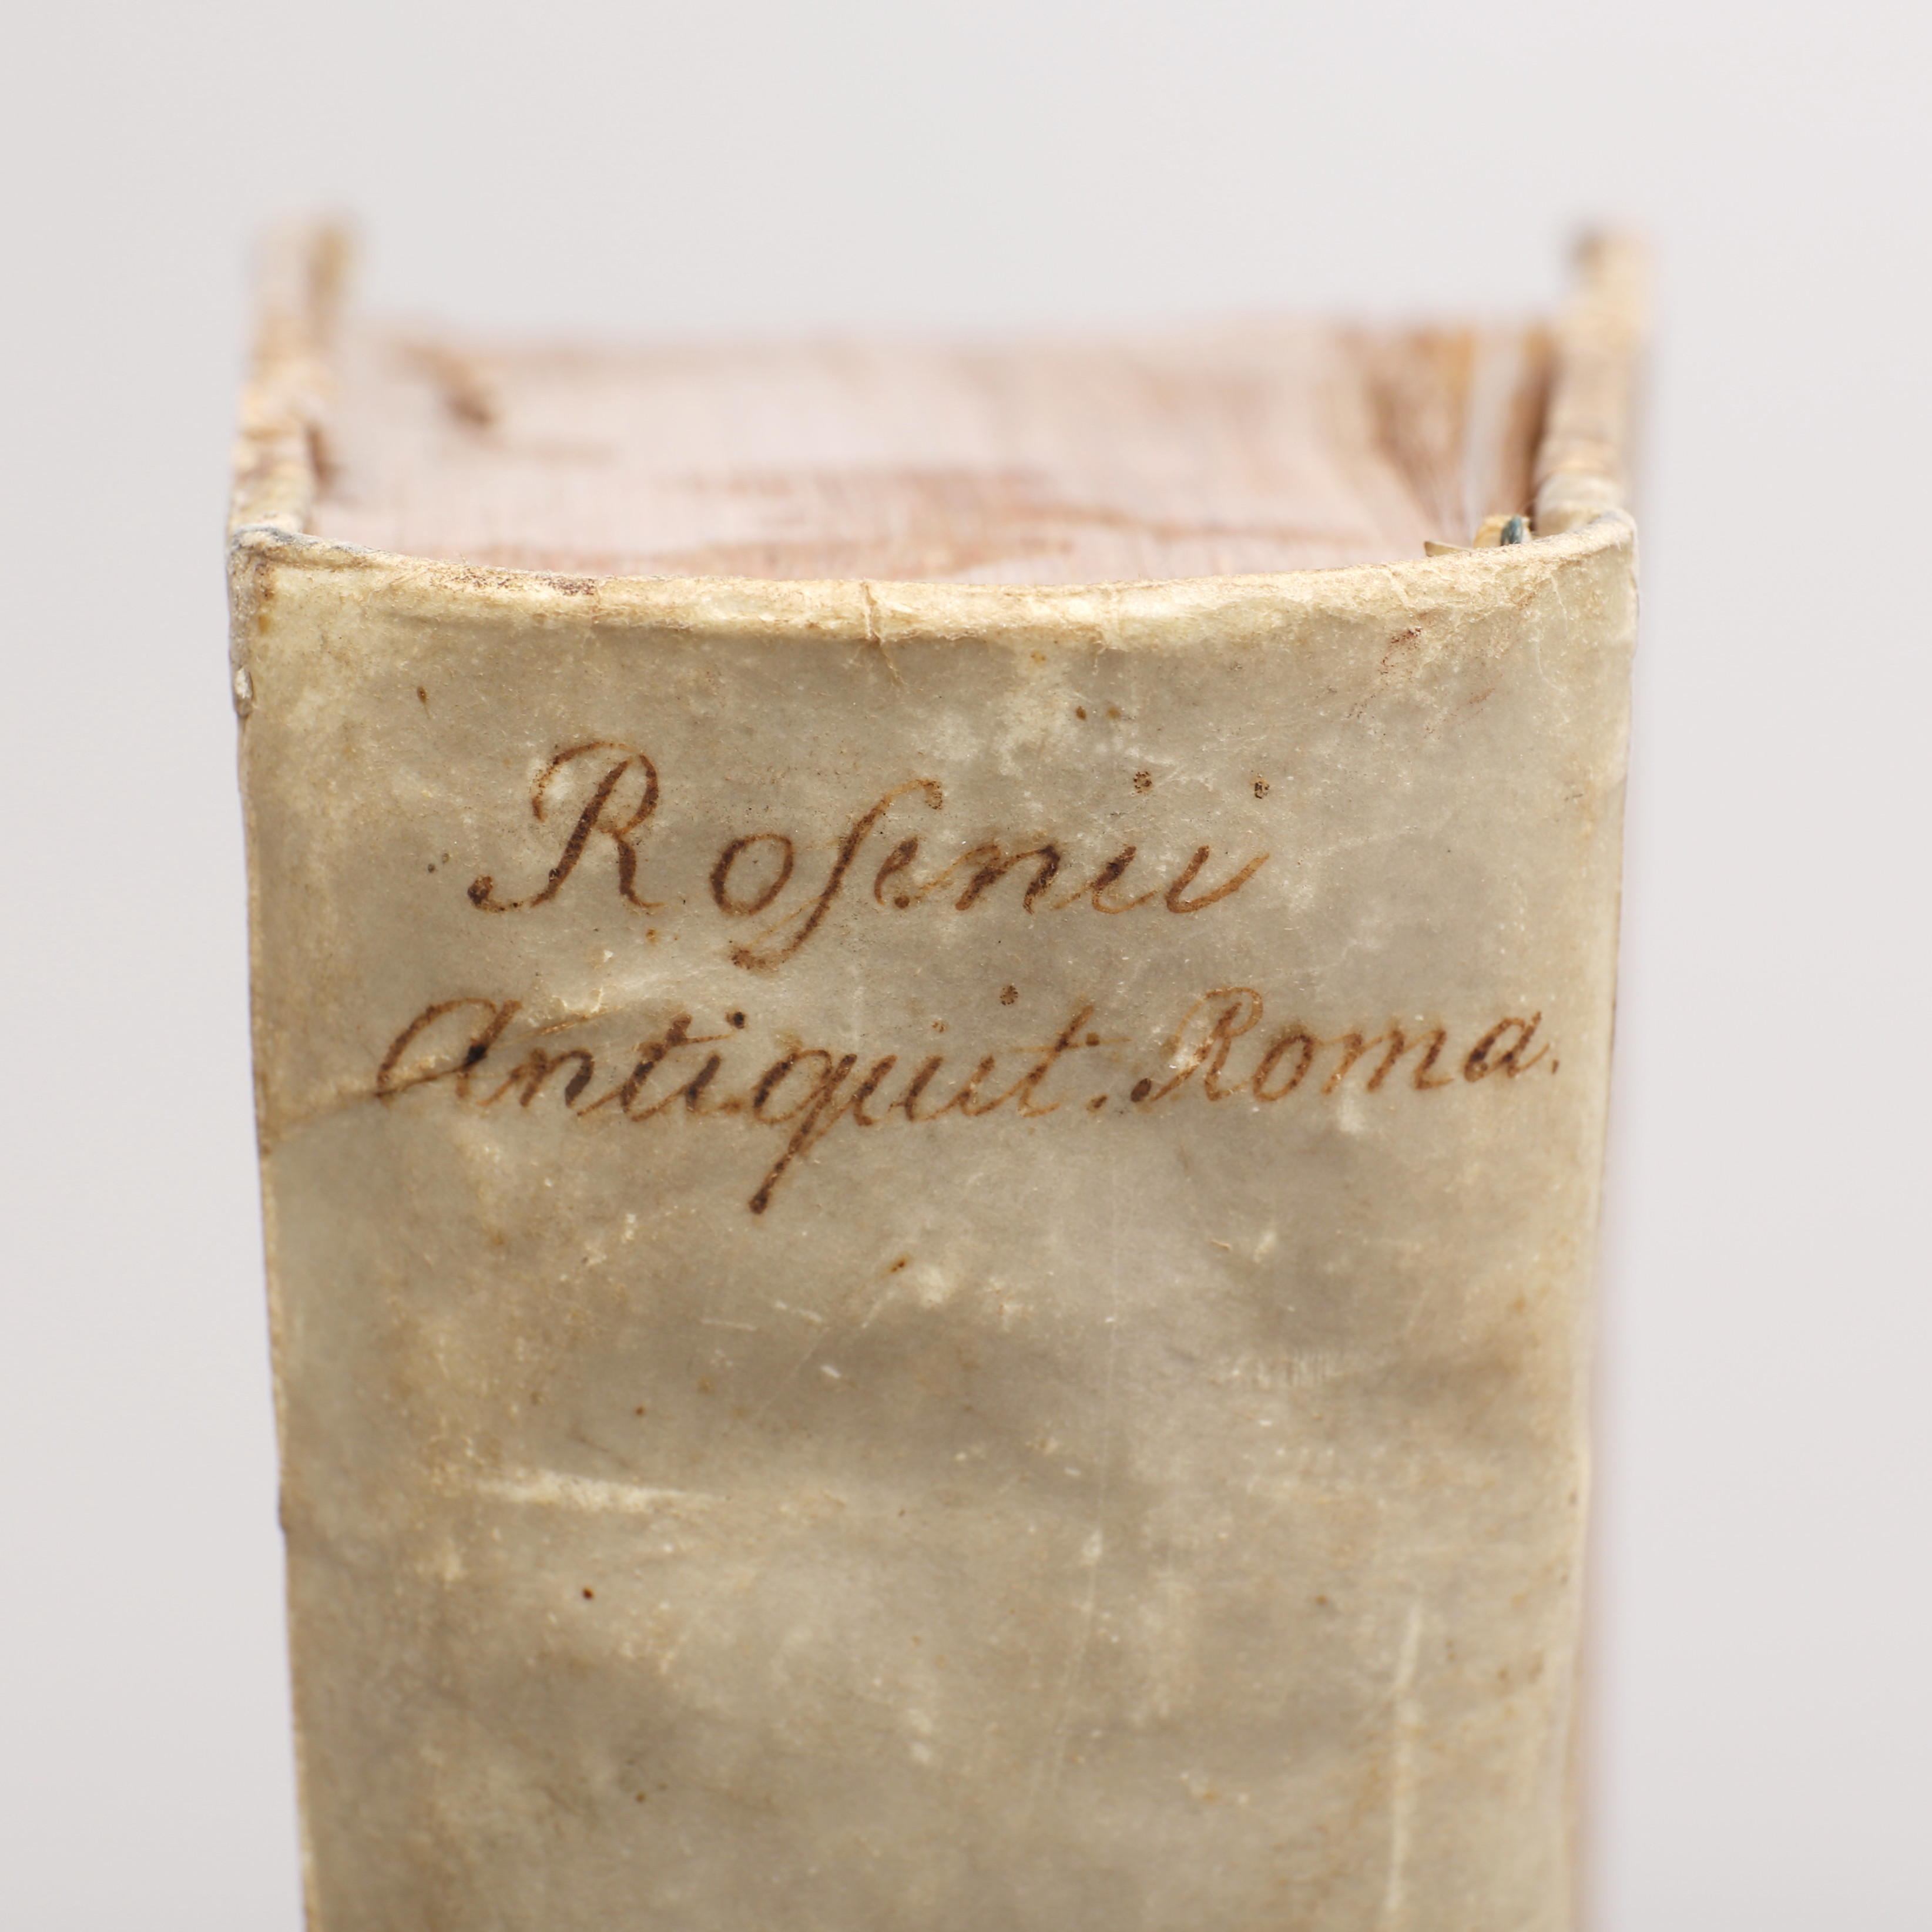 Roſenii
Antiquit. Roma.